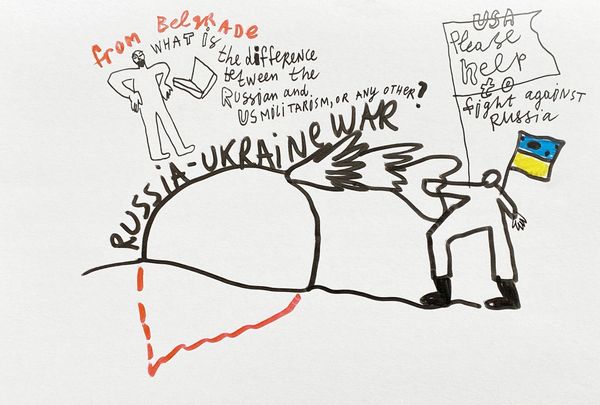 from BelgRADE
WHAT is
the difference
between the
Russian and
US MilitARiSM, OR ANY OtheR?
RUSSiA-UKRAiNe WAR
USA
Please
help
to
fight against
Russia